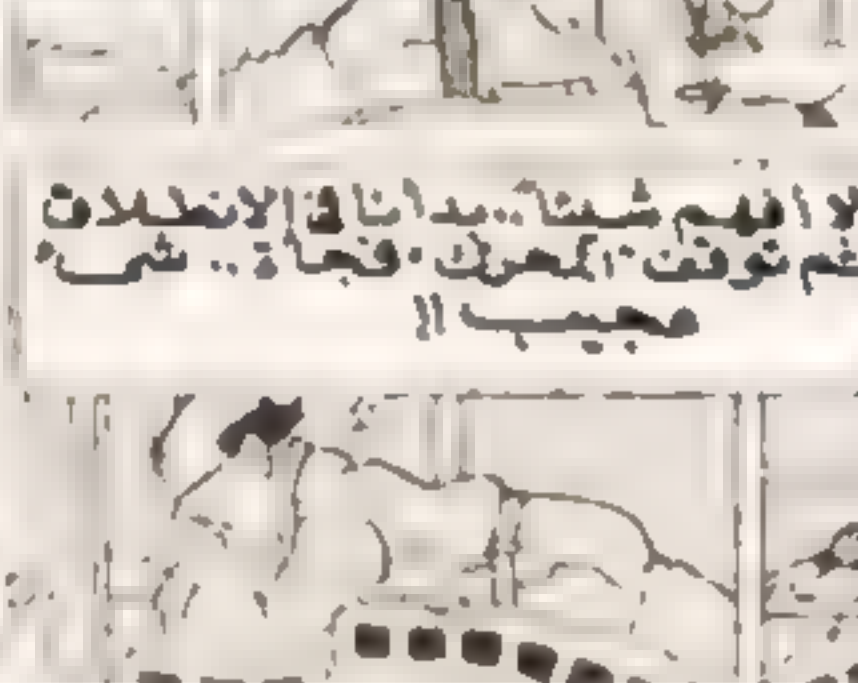 لا افهم شيئا.. بدانا في الانطلاق
ثم توقف المحرك فجأة.. شيء
عجيب !!